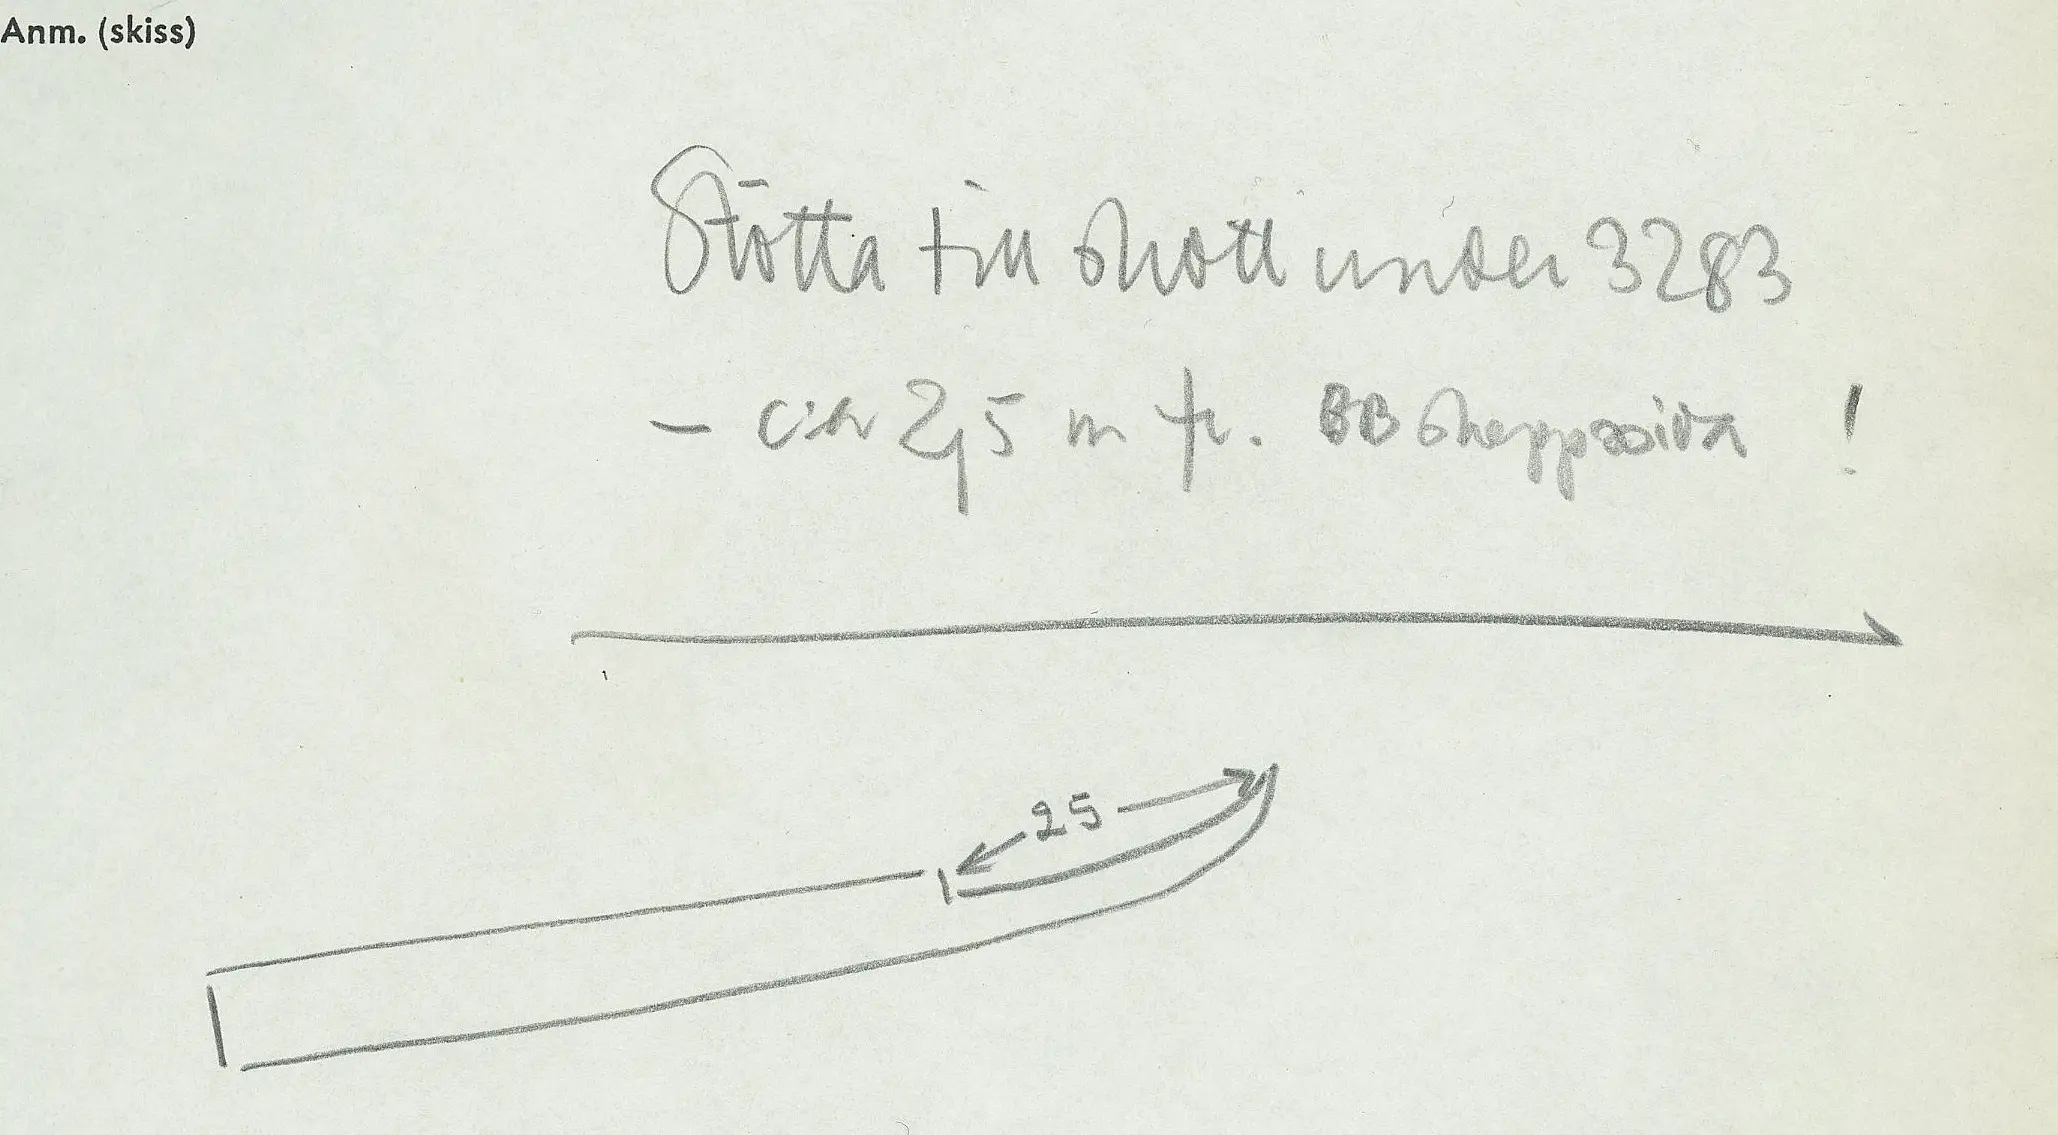 Anm. (skiss)
Stötta till skott under 3283
- cia 2,5 m fr. BB skeppssida !
25